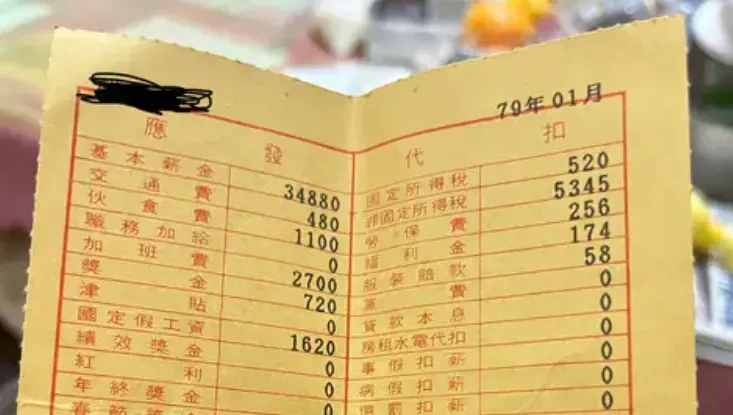 79年01月
應發
代扣
基本薪金 34880
交通費 480
伙食費 1100
職務加給 0
加班費 2700
獎金 720
津貼 0
國定假工資 1620
績效獎金 0
紅利 0
年終獎金 0
固定所得稅 520
非固定所得稅 5345
勞保費 256
福利金 174
服裝賠款 58
黨費 0
貸款本息 0
房租水電代扣 0
事假扣薪 0
病假扣薪 0
懲罰扣薪 0